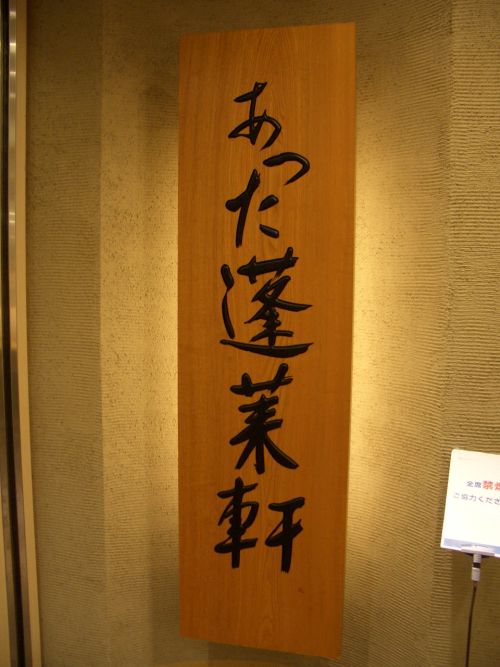 あつた蓬莱軒
全席禁煙
ご協力くださ